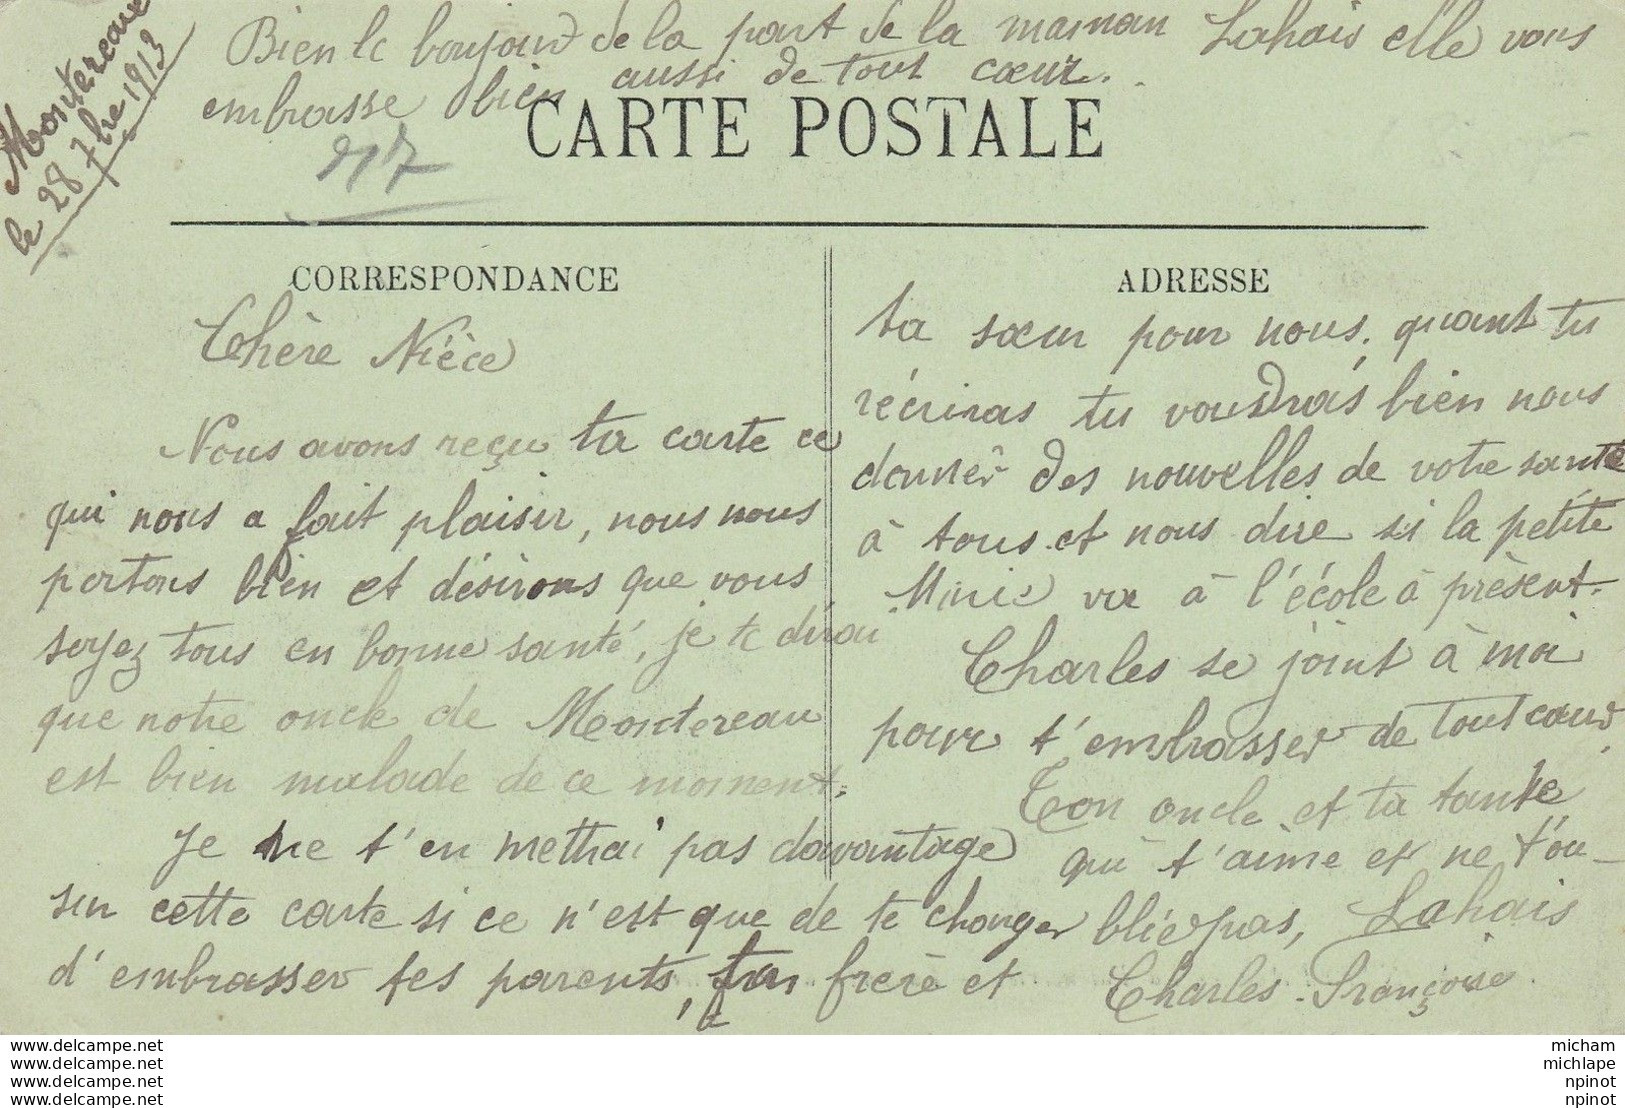 Montereau
le 28 7bre 1913
Bien le boujour de la part de la maman Lahais elle vous
embrasse bien aussi de tout cœur.
CARTE POSTALE
CORRESPONDANCE
Chère Nièce
Nous avons reçu ta carte ce
qui nous a fait plaisir, nous nous
portons bien et désirons que vous
soyez tous en bonne santé, je te dirai
que notre oncle de Montereau
est bien malade de ce moment.
Je ne t'en mettrai pas davantage
sur cette carte si ce n'est que de te charger
d'embrasser tes parents, ton frère et
ADRESSE
ta sœur pour nous. quant tu
récriras tu voudras bien nous
donner des nouvelles de votre santé
à tous et nous dire si la petite
Minie va à l'école à prèsent.
Charles se joint à moi
pour t'embrasser de tout cœur.
Ton oncle et ta tante
qui t'aime et ne t'ou-
blie pas, Lahais
Charles. Françoise.
michlape michlape michlape michlape
micham
michlape
npinot
npinot